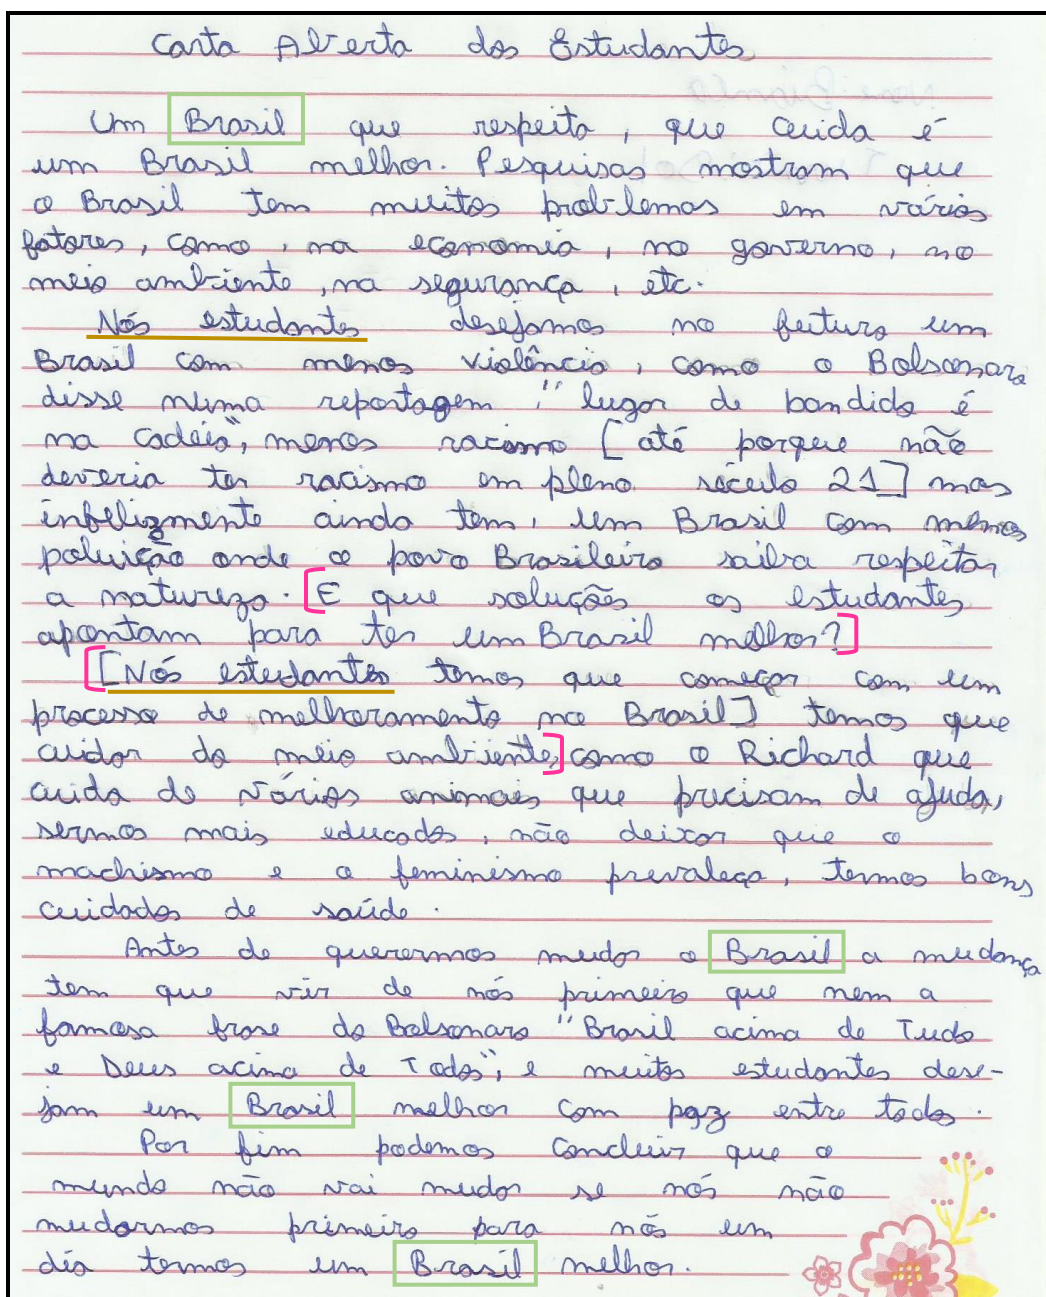 Carta Aberta dos Estudantes
Um Brasil que respeita, que cuida é
um Brasil melhor. Pesquisas mostram que
o Brasil tem muitos problemas em vários
fatores, como, na economia, no governo, no
meio ambiente, na segurança, etc.
Nós estudantes desejamos no futuro um
Brasil com menos violência, como o Bolsonaro
disse numa reportagem "lugar de bandido é
na cadeia", menos racismo [até porque não
deveria ter racismo em pleno século 21] mas
infelizmente ainda tem, um Brasil com menos
poluição onde o povo Brasileiro saiba respeitar
a natureza. [E que soluções os estudantes
apontam para ter um Brasil melhor?]
[Nós estudantes temos que começar com um
processo de melhoramento no Brasil] temos que
cuidar do meio ambiente,] como o Richard que
cuida de vários animais que precisam de ajuda,
sermos mais educados, não deixar que o
machismo e o feminismo prevaleça, termos bons
cuidados de saúde.
Antes de querermos mudar o Brasil a mudança
tem que vir de nós primeiro que nem a
famosa frase do Bolsonaro "Brasil acima de Tudo
e Deus acima de Todos", e muitos estudantes dese-
jam um Brasil melhor com paz entre todos.
Por fim podemos concluir que o
mundo não vai mudar se nós não
mudarmos primeiro para nós um
dia termos um Brasil melhor.